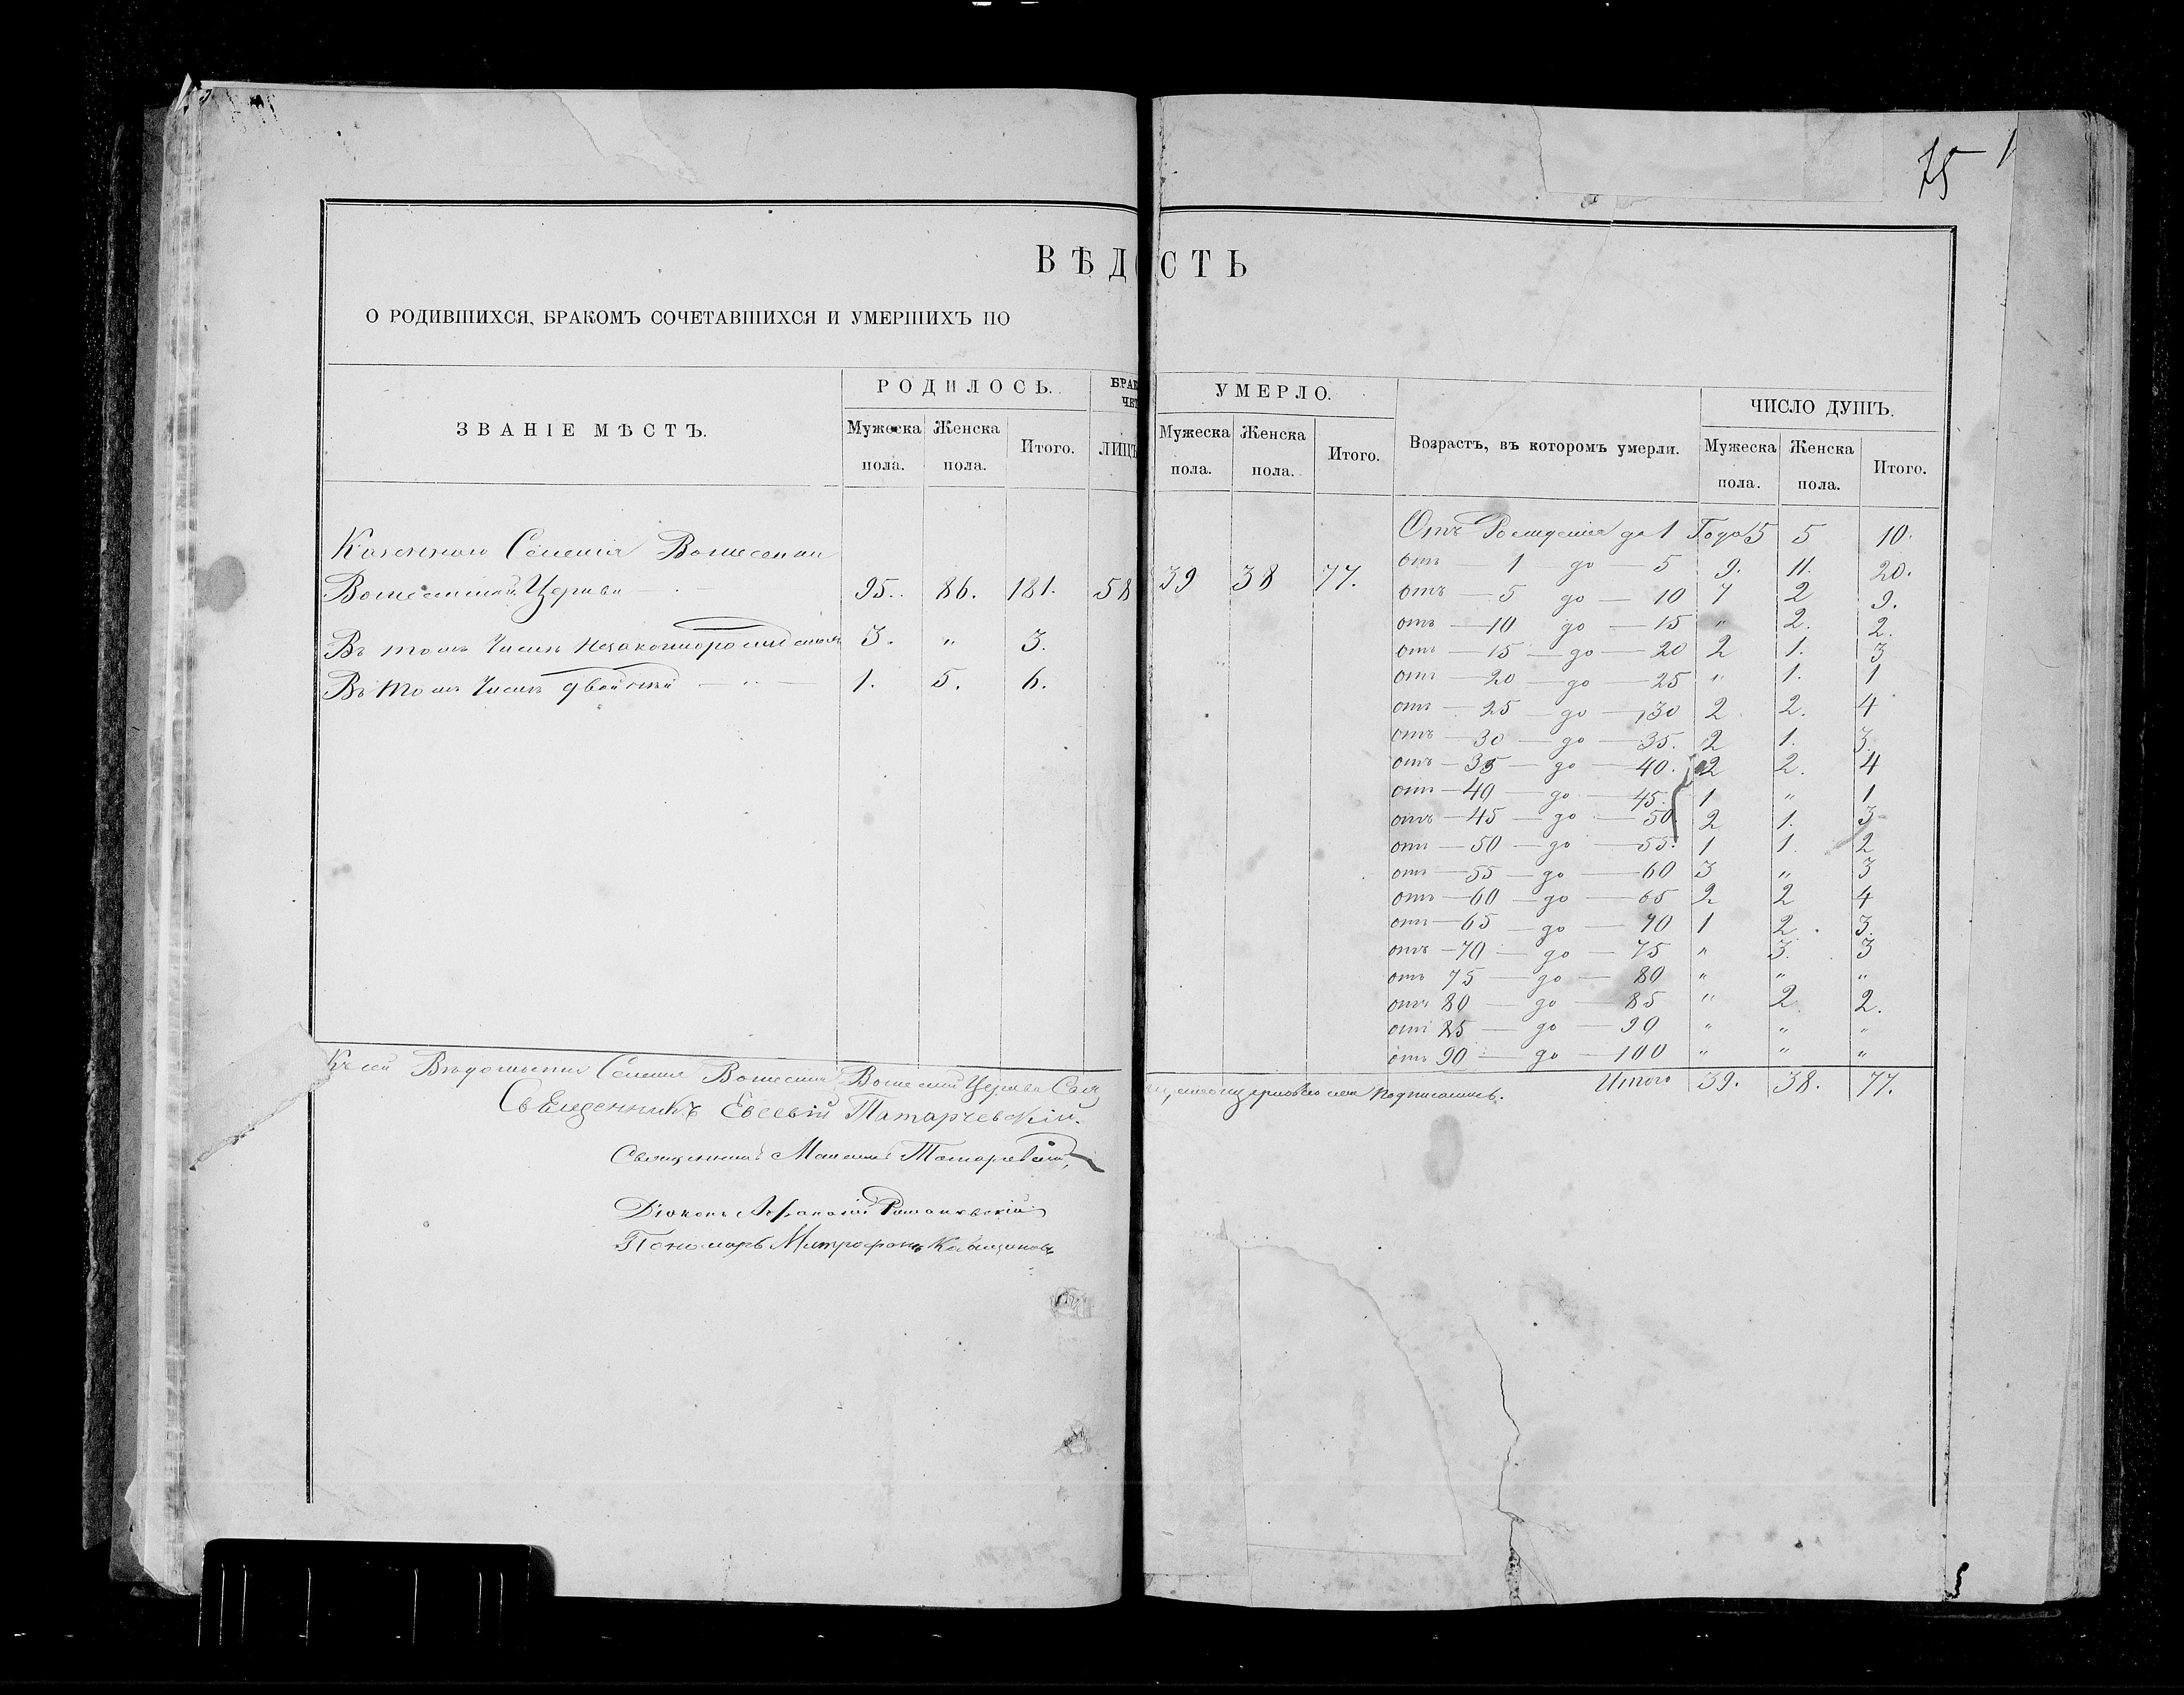 75 1
ВѢДОСТЬ
О РОДИВШИХСЯ, БРАКОМЪ СОЧЕТАВШИХСЯ И УМЕРШИХЪ ПО
ЗВАНІЕ МѢСТЪ.
РОДИЛОСЬ.
Мужеска пола.
Женска пола.
Итого.
БРАК
ЧЕТ
ЛИЦЪ
УМЕРЛО.
Мужеска пола.
Женска пола.
Итого.
Возрастъ, въ которомъ умерли.
ЧИСЛО ДУШЪ.
Мужеска пола.
Женска пола.
Итого.
Казеннаго Селенія
Церкви 95. 86. 181. 58 39 38 77.
Въ томъ Числѣ незаконнорожденныхъ 3. " 3.
Въ томъ Числѣ двойней 1. 5. 6.
Отъ Рожденія до 1 Года 5 5 10.
отъ 1 до 5 9. 11. 20.
отъ 5 до 10 7 2 9.
отъ 10 до 15 " 2. 2.
отъ 15 до 20 2 1. 3
отъ 20 до 25 " 1. 1
отъ 25 до 30 2 2. 4
отъ 30 до 35. 2 1. 3.
отъ 35 до 40. 2 2. 4
отъ 40 до 45. 1 " 1
отъ 45 до 50 2 1. 3
отъ 50 до 55. 1 1. 2
отъ 55 до 60 3 " 3
отъ 60 до 65 2 2 4
отъ 65 до 70 1 2. 3.
отъ 70 до 75 " 3. 3
отъ 75 до 80 " " "
отъ 80 до 85 " 2. 2.
отъ 85 до 90 " " "
отъ 90 до 100 " " "
Итого 39. 38. 77.
Къ сей Вѣдомости Селенія Церкви подписались.
Священникъ Евсевій Татарчевскій.
Священникъ
Діаконъ Афанасій
Пономарь Митрофанъ